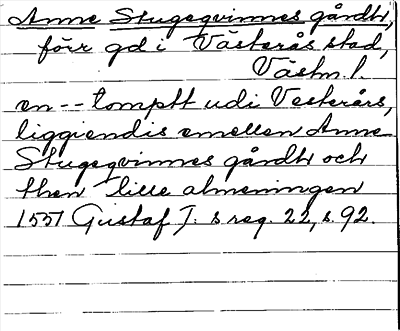 Anne Stugeqvinnes gårdh,
förr gd i Västerås stad,
Västm. l.
en -- tomptt udi Vesterårs,
liggiendis emellen Anne
Stugeqvinnes gårdh och
then lille almeningen
1551 Gustaf I:s reg. 22, s. 92.